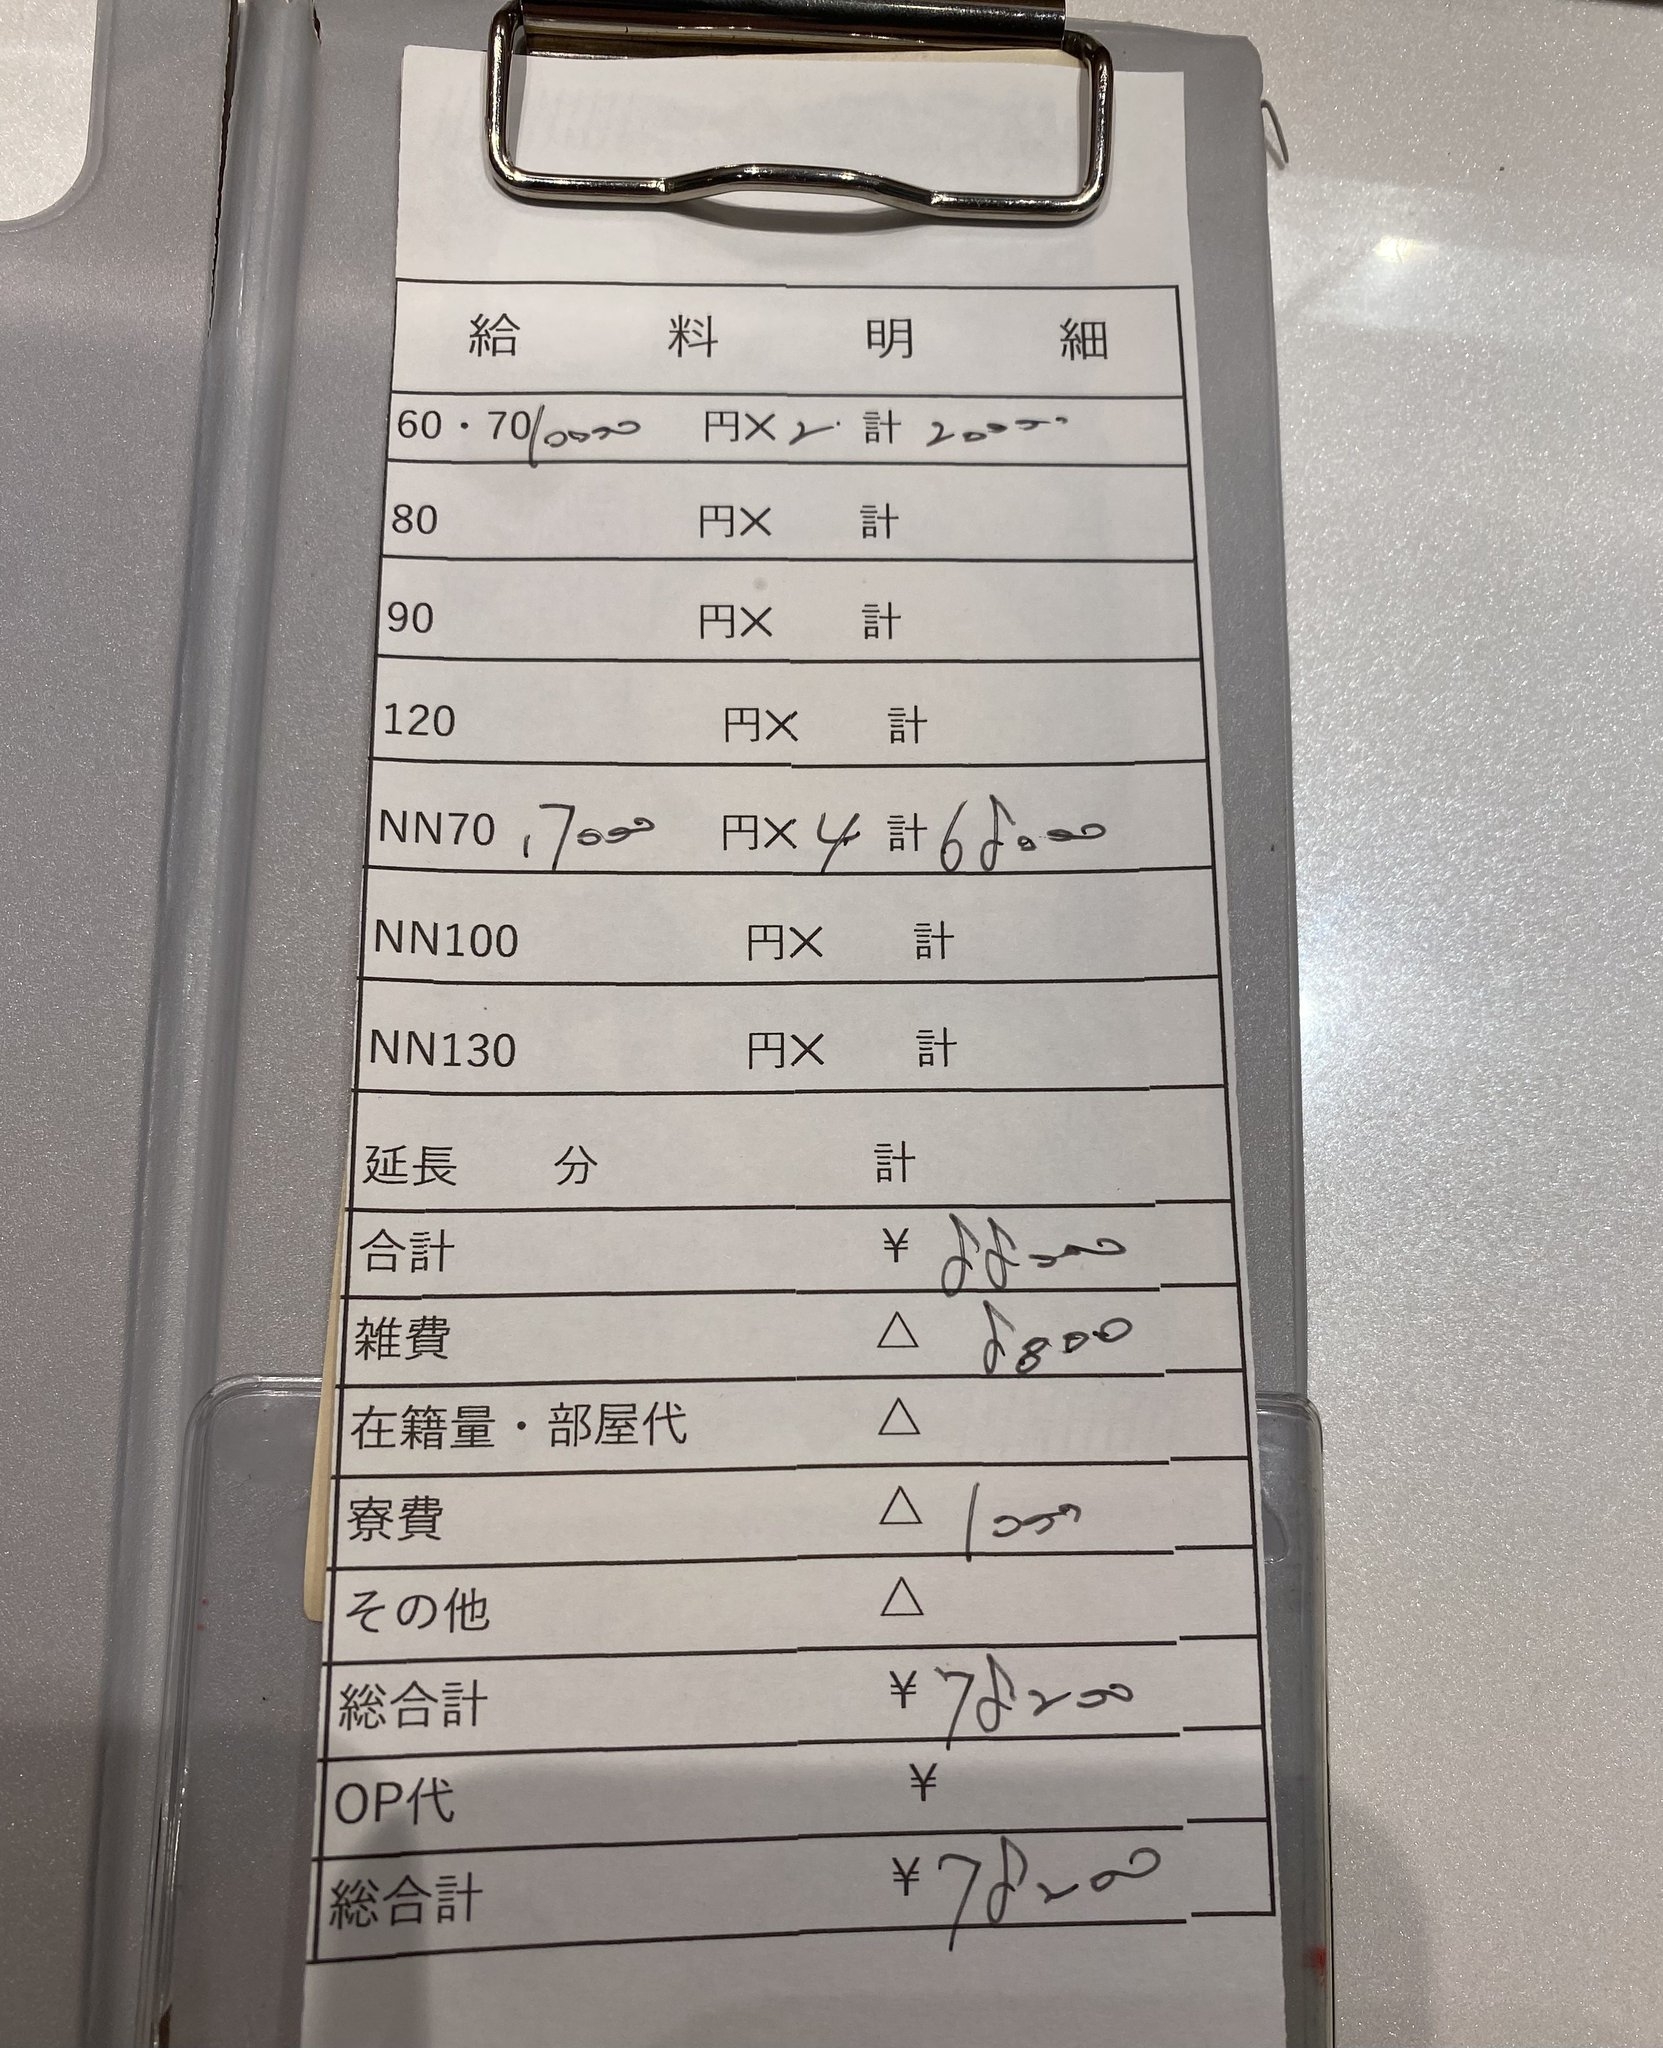 給料明細
60・70 10000 円× 2 計 20000
80 円× 計
90 円× 計
120 円× 計
NN70 17000 円× 4 計 68000
NN100 円× 計
NN130 円× 計
延長 分 計
合計 ¥ 88000
雑費 △ 8800
在籍量・部屋代 △
寮費 △ 1000
その他 △
総合計 ¥ 78200
OP代 ¥
総合計 ¥ 78200